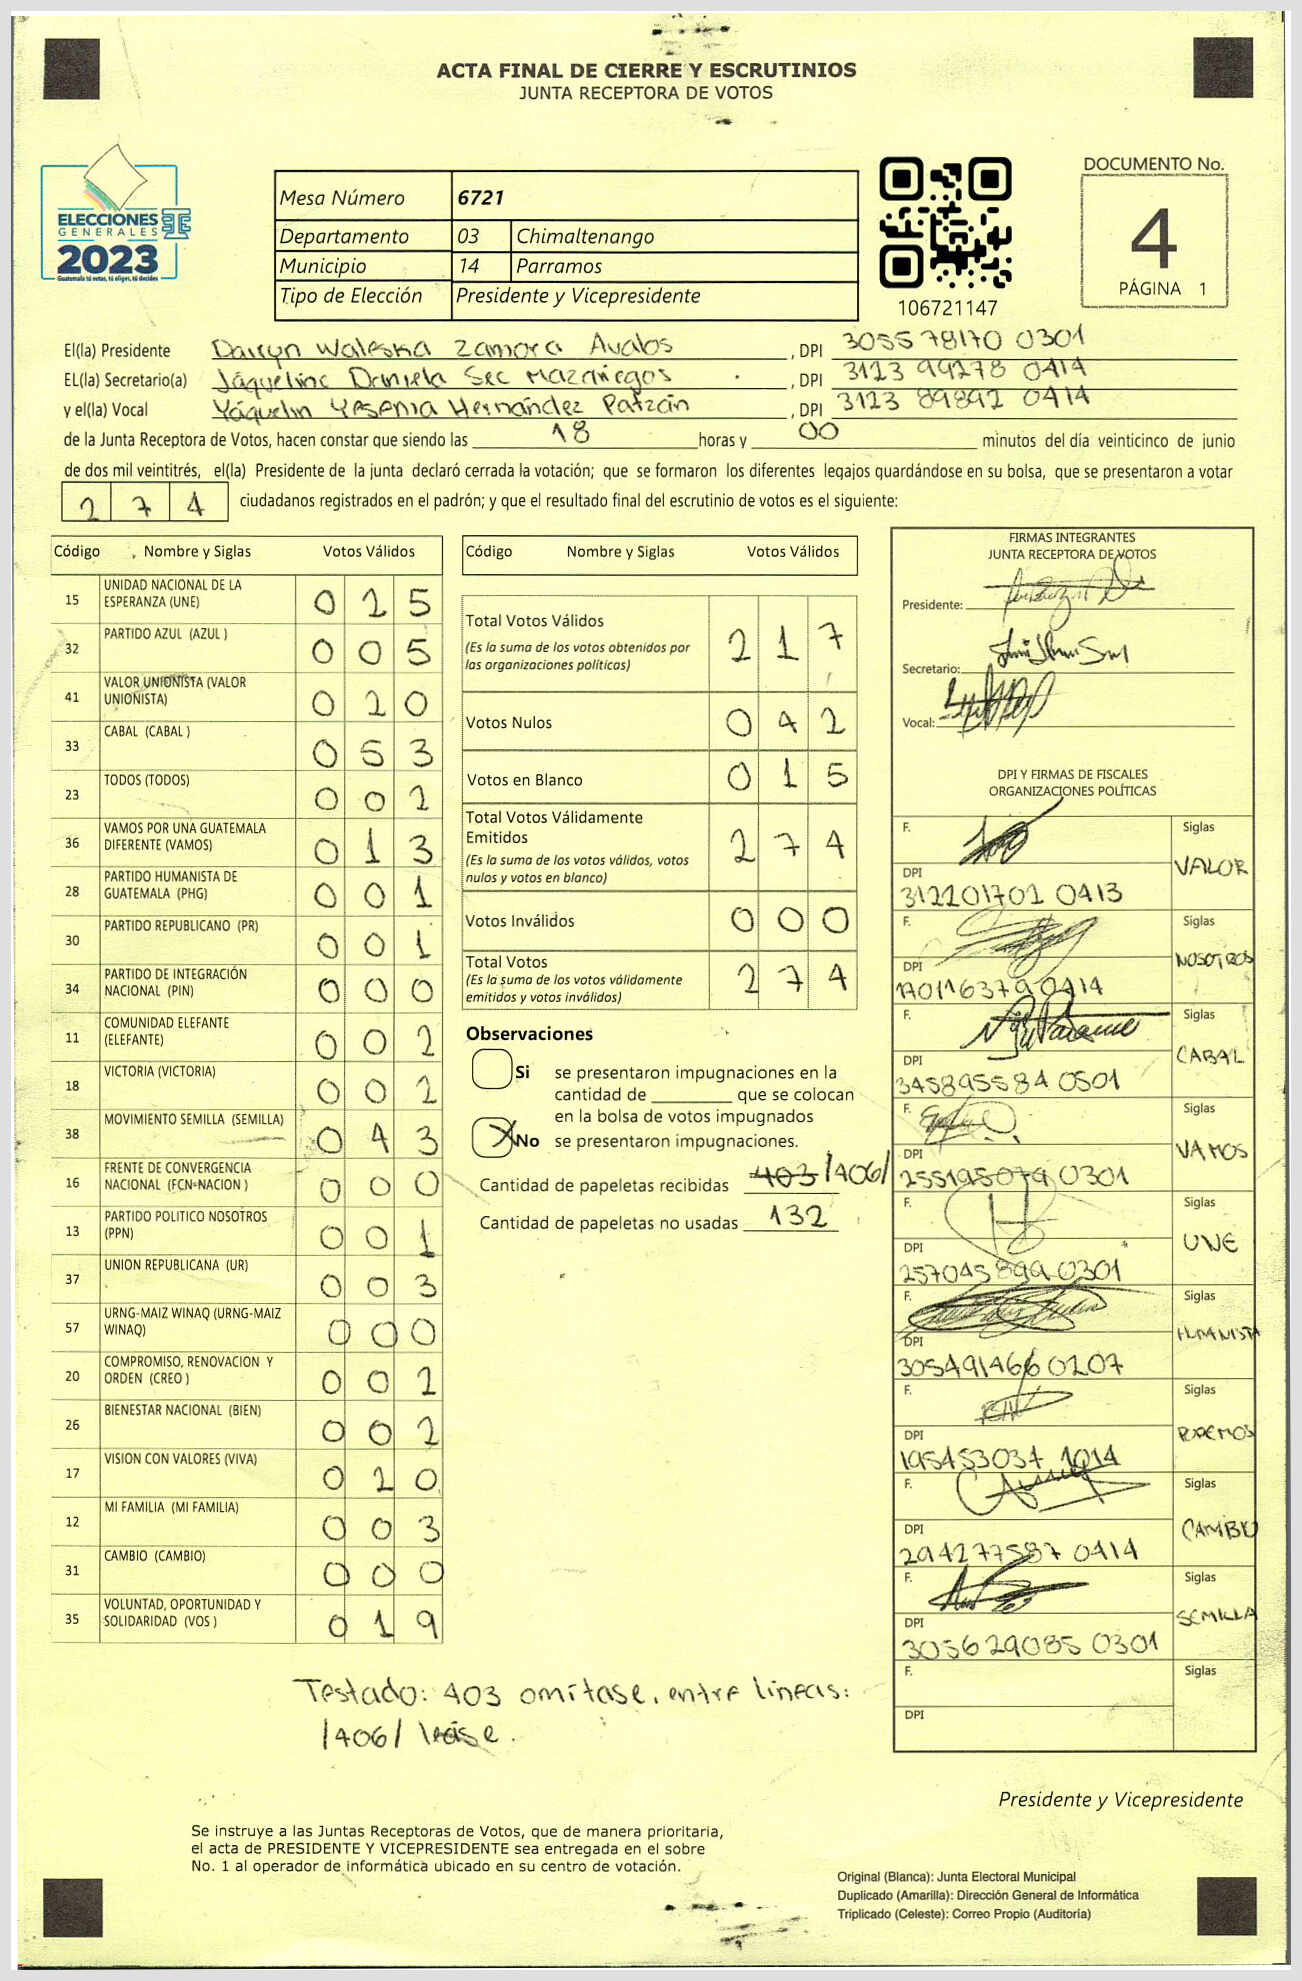 ACTA FINAL DE CIERRE Y ESCRUTINIOS
JUNTA RECEPTORA DE VOTOS
ELECCIONES
GENERALES
2023
Guatemala tú votas, tú eliges, tú decides
Mesa Número 6721
Departamento 03 Chimaltenango
Municipio 14 Parramos
Tipo de Elección Presidente y Vicepresidente
106721147
DOCUMENTO No.
4
PÁGINA 1
El(la) Presidente Waleska Zamora Avalos, DPI 305578170 0301
EL(la) Secretario(a) Jáqueline Daniela Sec Mazariegos, DPI 3123 99278 0414
y el(la) Vocal Yáquelin Yesenia Hernández Patzán, DPI 3123 89892 0414
de la Junta Receptora de Votos, hacen constar que siendo las 18 horas y 00 minutos del día veinticinco de junio
de dos mil veintitrés, el(la) Presidente de la junta declaró cerrada la votación; que se formaron los diferentes legajos guardándose en su bolsa, que se presentaron a votar
274 ciudadanos registrados en el padrón; y que el resultado final del escrutinio de votos es el siguiente:
Código Nombre y Siglas Votos Válidos
15 UNIDAD NACIONAL DE LA
ESPERANZA (UNE) 025
32 PARTIDO AZUL (AZUL ) 005
41 VALOR UNIONISTA (VALOR
UNIONISTA) 020
33 CABAL (CABAL ) 053
23 TODOS (TODOS) 002
36 VAMOS POR UNA GUATEMALA
DIFERENTE (VAMOS) 013
28 PARTIDO HUMANISTA DE
GUATEMALA (PHG) 001
30 PARTIDO REPUBLICANO (PR) 001
34 PARTIDO DE INTEGRACIÓN
NACIONAL (PIN) 000
11 COMUNIDAD ELEFANTE
(ELEFANTE) 002
18 VICTORIA (VICTORIA) 002
38 MOVIMIENTO SEMILLA (SEMILLA) 043
16 FRENTE DE CONVERGENCIA
NACIONAL (FCN-NACION ) 000
13 PARTIDO POLITICO NOSOTROS
(PPN) 001
37 UNION REPUBLICANA (UR) 003
57 URNG-MAIZ WINAQ (URNG-MAIZ
WINAQ) 000
20 COMPROMISO, RENOVACION Y
ORDEN (CREO ) 002
26 BIENESTAR NACIONAL (BIEN) 002
17 VISION CON VALORES (VIVA) 020
12 MI FAMILIA (MI FAMILIA) 003
31 CAMBIO (CAMBIO) 000
35 VOLUNTAD, OPORTUNIDAD Y
SOLIDARIDAD (VOS ) 019
Código Nombre y Siglas Votos Válidos
Total Votos Válidos
(Es la suma de los votos obtenidos por
las organizaciones políticas) 217
Votos Nulos 042
Votos en Blanco 015
Total Votos Válidamente
Emitidos
(Es la suma de los votos válidos, votos
nulos y votos en blanco) 274
Votos Inválidos 000
Total Votos
(Es la suma de los votos válidamente
emitidos y votos inválidos) 274
Observaciones
Si se presentaron impugnaciones en la
cantidad de ________ que se colocan
en la bolsa de votos impugnados
X No se presentaron impugnaciones.
Cantidad de papeletas recibidas 403 /406/
Cantidad de papeletas no usadas 132
FIRMAS INTEGRANTES
JUNTA RECEPTORA DE VOTOS
Presidente:
Secretario:
Vocal:
DPI Y FIRMAS DE FISCALES
ORGANIZACIONES POLÍTICAS
F. Siglas VALOR
DPI 312201702 0413
F. Siglas NOSOTROS
DPI 170116379 0414
F. Siglas CABAL
DPI 345895584 0501
F. Siglas VAMOS
DPI 255195079 0301
F. Siglas UNE
DPI 257045899 0301
F. Siglas HUMANISTA
DPI 305491466 0207
F. Siglas PODEMOS
DPI 195453037 1014
F. Siglas CAMBIO
DPI 294277587 0414
F. Siglas SEMILLA
DPI 305629085 0301
F. Siglas
DPI
Testado: 403 omítase, entre líneas:
/406/ léase.
Presidente y Vicepresidente
Se instruye a las Juntas Receptoras de Votos, que de manera prioritaria,
el acta de PRESIDENTE Y VICEPRESIDENTE sea entregada en el sobre
No. 1 al operador de informática ubicado en su centro de votación.
Original (Blanca): Junta Electoral Municipal
Duplicado (Amarilla): Dirección General de Informática
Triplicado (Celeste): Correo Propio (Auditoría)